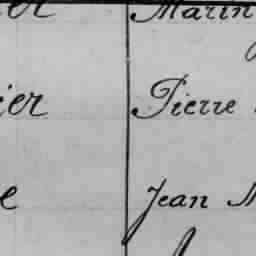 er Marin
ier Pierre
e Jean M